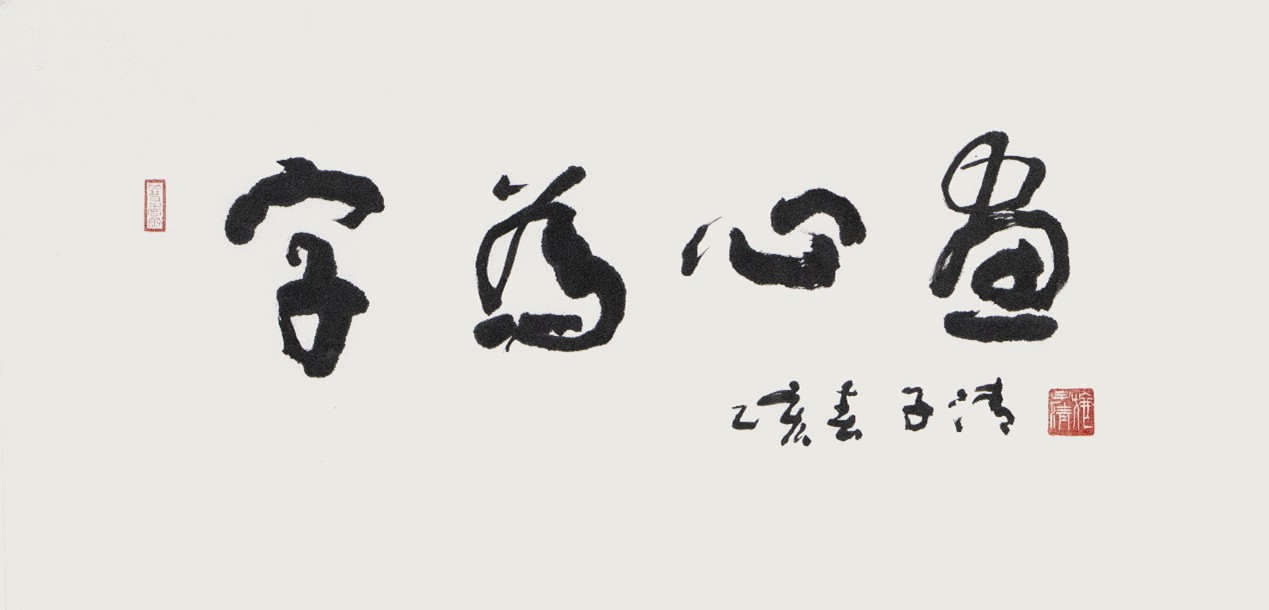 字為心畫
乙亥春 子清